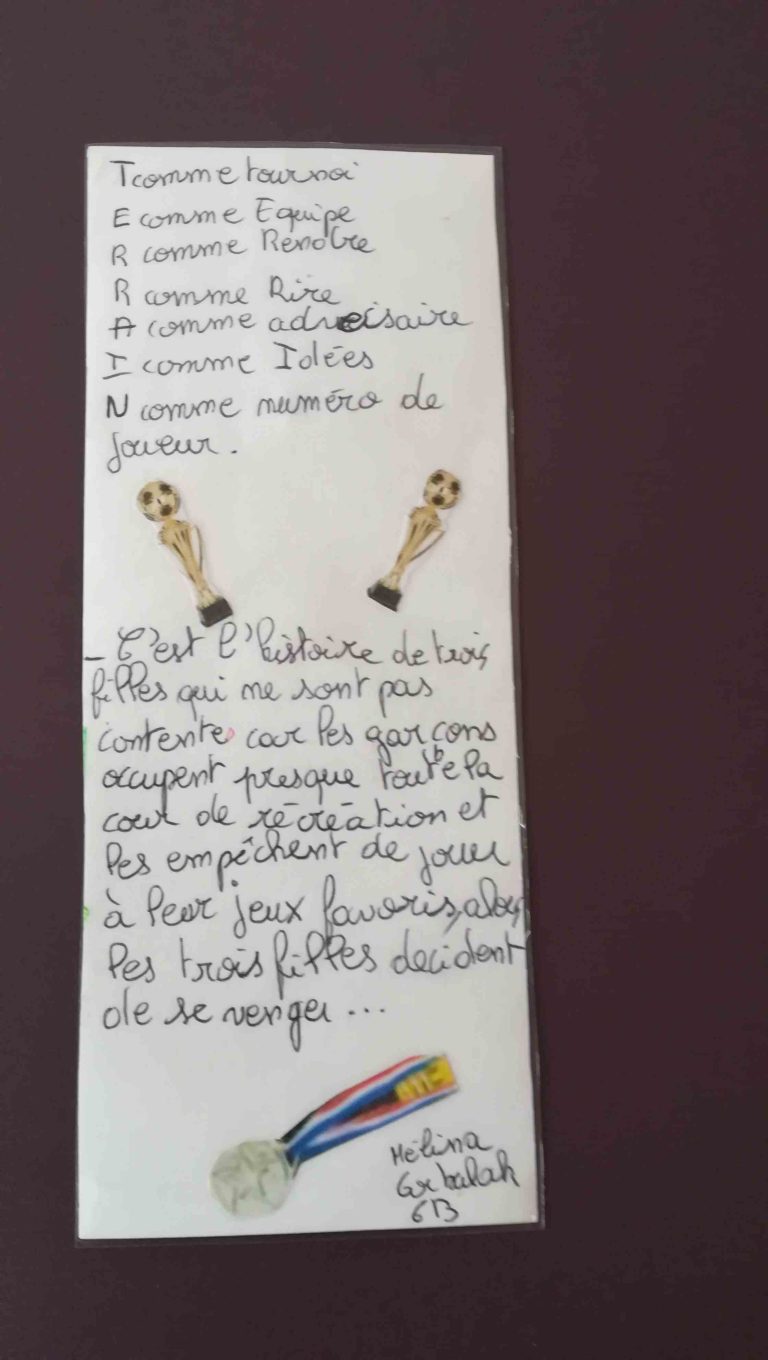 T comme tournoi
E comme Equipe
R comme
R comme Rire
A comme adversaire
I comme Idées
N comme numéro de
joueur.
- C'est l'histoire de trois
filles qui ne sont pas
contentes car les garçons
occupent presque toute la
cour de récréation et
les empêchent de jouer
à leur jeux favoris, alors
les trois filles decident
de se venger...
Mélina
6B